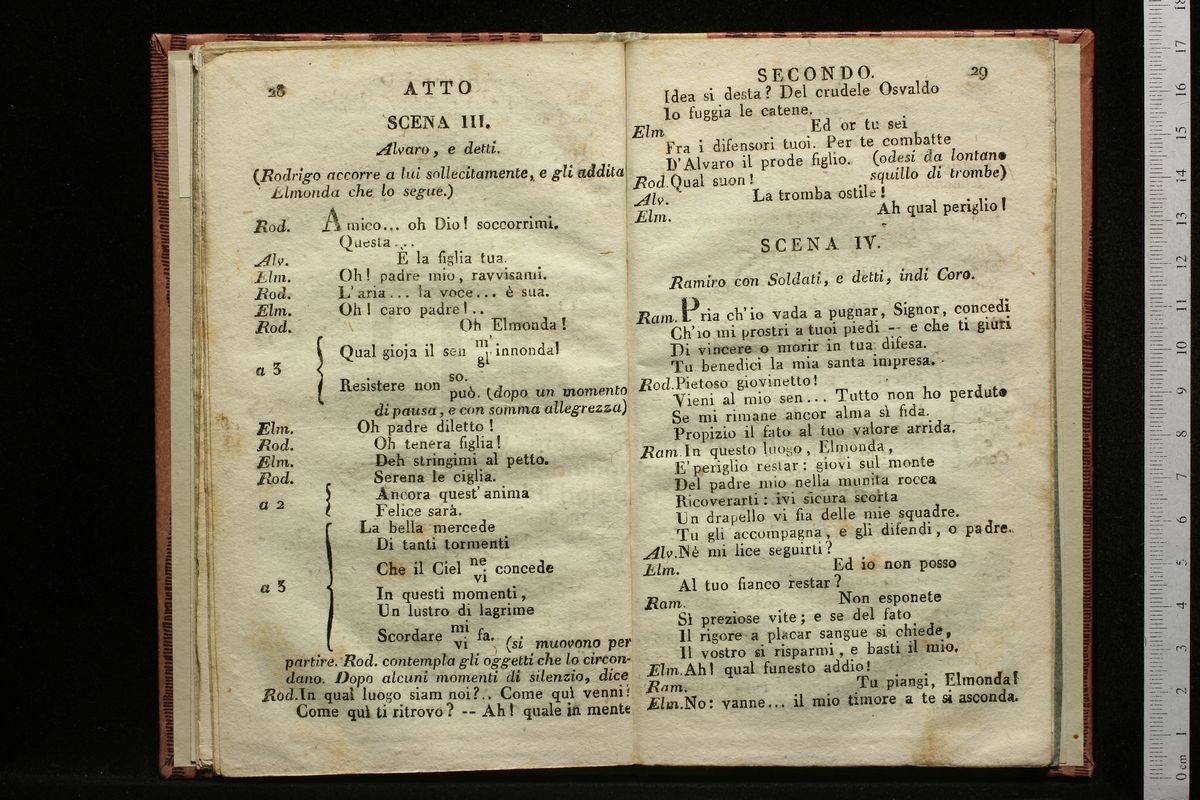 28 ATTO
SCENA III.
Alvaro, e detti.
(Rodrigo accorre a lui sollecitamente, e gli addita
Elmonda che lo segue.)
Rod. Amico... oh Dio! soccorrimi.
Questa...
Alv. È la figlia tua.
Elm. Oh! padre mio, ravvisami.
Rod. L'aria... la voce... è sua.
Elm. Oh! caro padre!..
Rod. Oh Elmonda!
a 3
Qual gioja il sen m' innonda!
gl'
Resistere non so.
può. (dopo un momento
di pausa, e con somma allegrezza)
Elm. Oh padre diletto!
Rod. Oh tenera figlia!
Elm. Deh stringimi al petto.
Rod. Serena le ciglia.
a 2 Ancora quest'anima
Felice sarà.
a 3
La bella mercede
Di tanti tormenti
Che il Ciel ne concede
vi
In questi momenti,
Un lustro di lagrime
Scordare mi fa. (si muovono per
vi
partire. Rod. contempla gli oggetti che lo circon-
dano. Dopo alcuni momenti di silenzio, dice
Rod. In qual luogo siam noi?.. Come quì venni?
Come quì ti ritrovo? -- Ah! quale in mente
SECONDO. 29
Idea si desta? Del crudele Osvaldo
Io fuggia le catene.
Elm Ed or tu sei
Fra i difensori tuoi. Per te combatte
D'Alvaro il prode figlio. (odesi da lontano
squillo di trombe)
Rod. Qual suon!
Alv. La tromba ostile!
Elm. Ah qual periglio!
SCENA IV.
Ramiro con Soldati, e detti, indi Coro.
Ram. Pria ch'io vada a pugnar, Signor, concedi
Ch'io mi prostri a tuoi piedi -- e che ti giuri
Di vincere o morir in tua difesa.
Tu benedici la mia santa impresa.
Rod. Pietoso giovinetto!
Vieni al mio sen... Tutto non ho perduto
Se mi rimane ancor alma sì fida.
Propizio il fato al tuo valore arrida.
Ram. In questo luogo, Elmonda,
E' periglio restar: giovi sul monte
Del padre mio nella munita rocca
Ricoverarti: ivi sicura scorta
Un drapello vi fia delle mie squadre.
Tu gli accompagna, e gli difendi, o padre.
Alv. Nè mi lice seguirti?
Elm. Ed io non posso
Al tuo fianco restar?
Ram. Non esponete
Sì preziose vite; e se del fato
Il rigore a placar sangue si chiede,
Il vostro si risparmi, e basti il mio.
Elm. Ah! qual funesto addio!
Ram. Tu piangi, Elmonda!
Elm. No: vanne... il mio timore a te si asconda.
0 cm 1 2 3 4 5 6 7 8 9 10 11 12 13 14 15 16 17 18